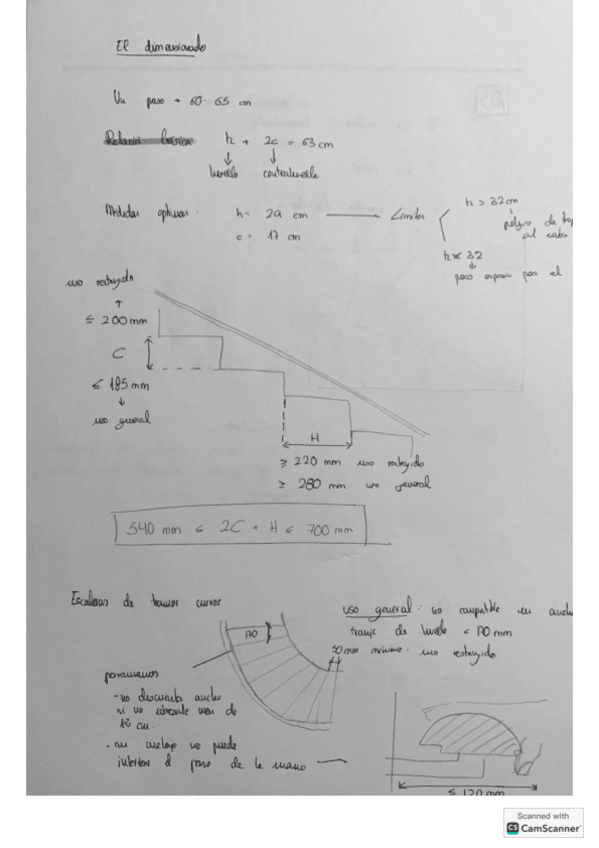 El dimensionado
Un paso → 60-65 cm
Relación básica h + 2c = 63 cm
huella contrahuella
Medidas óptimas: h = 29 cm Límites h > 32 cm
c = 17 cm peligro de
al subir
h < 32
poco espacio por el
uso restringido
≤ 200 mm
C
≤ 185 mm
uso general
H
≥ 220 mm uso restringido
≥ 280 mm uso general
540 mm ≤ 2C + H ≤ 700 mm
Escaleras de tramos curvos
uso general: no computable en
de huella < 170 mm
50 mm mínimo: uso restringido
170
pasamanos
- no descuenta ancho
si no sobresale más de
12 cm
- su anclaje no puede
interferir el paso de la mano
≤ 120 mm
Scanned with
CS CamScanner